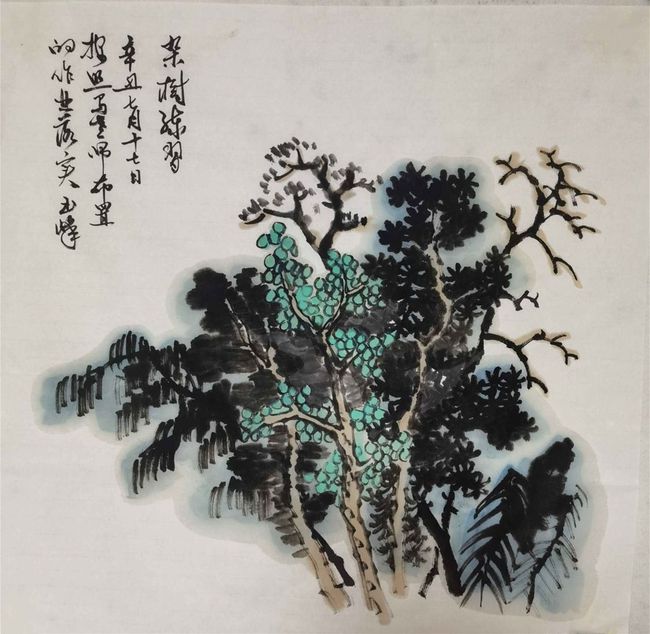 杂树练习
辛丑七月十七日
按照马老师布置
的作业落实 玉峰